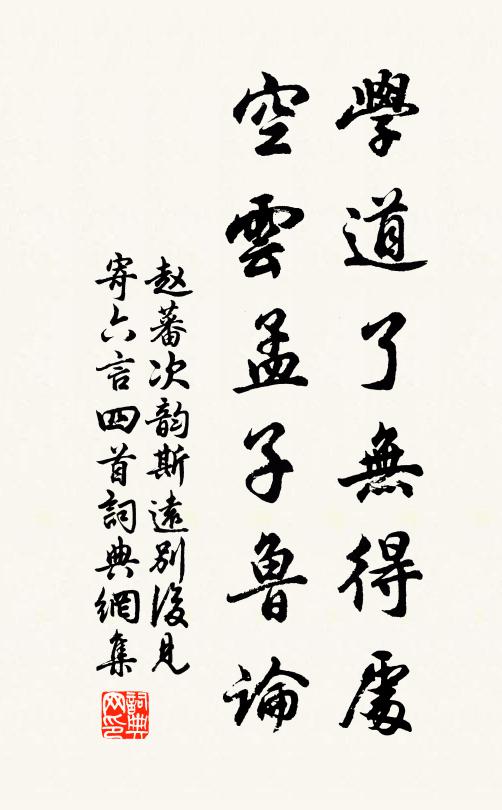 學道了無得處
空雲孟子魯論
赵蕃次韵斯遠別後見
寄六言四首詞典網集
詞典
网印